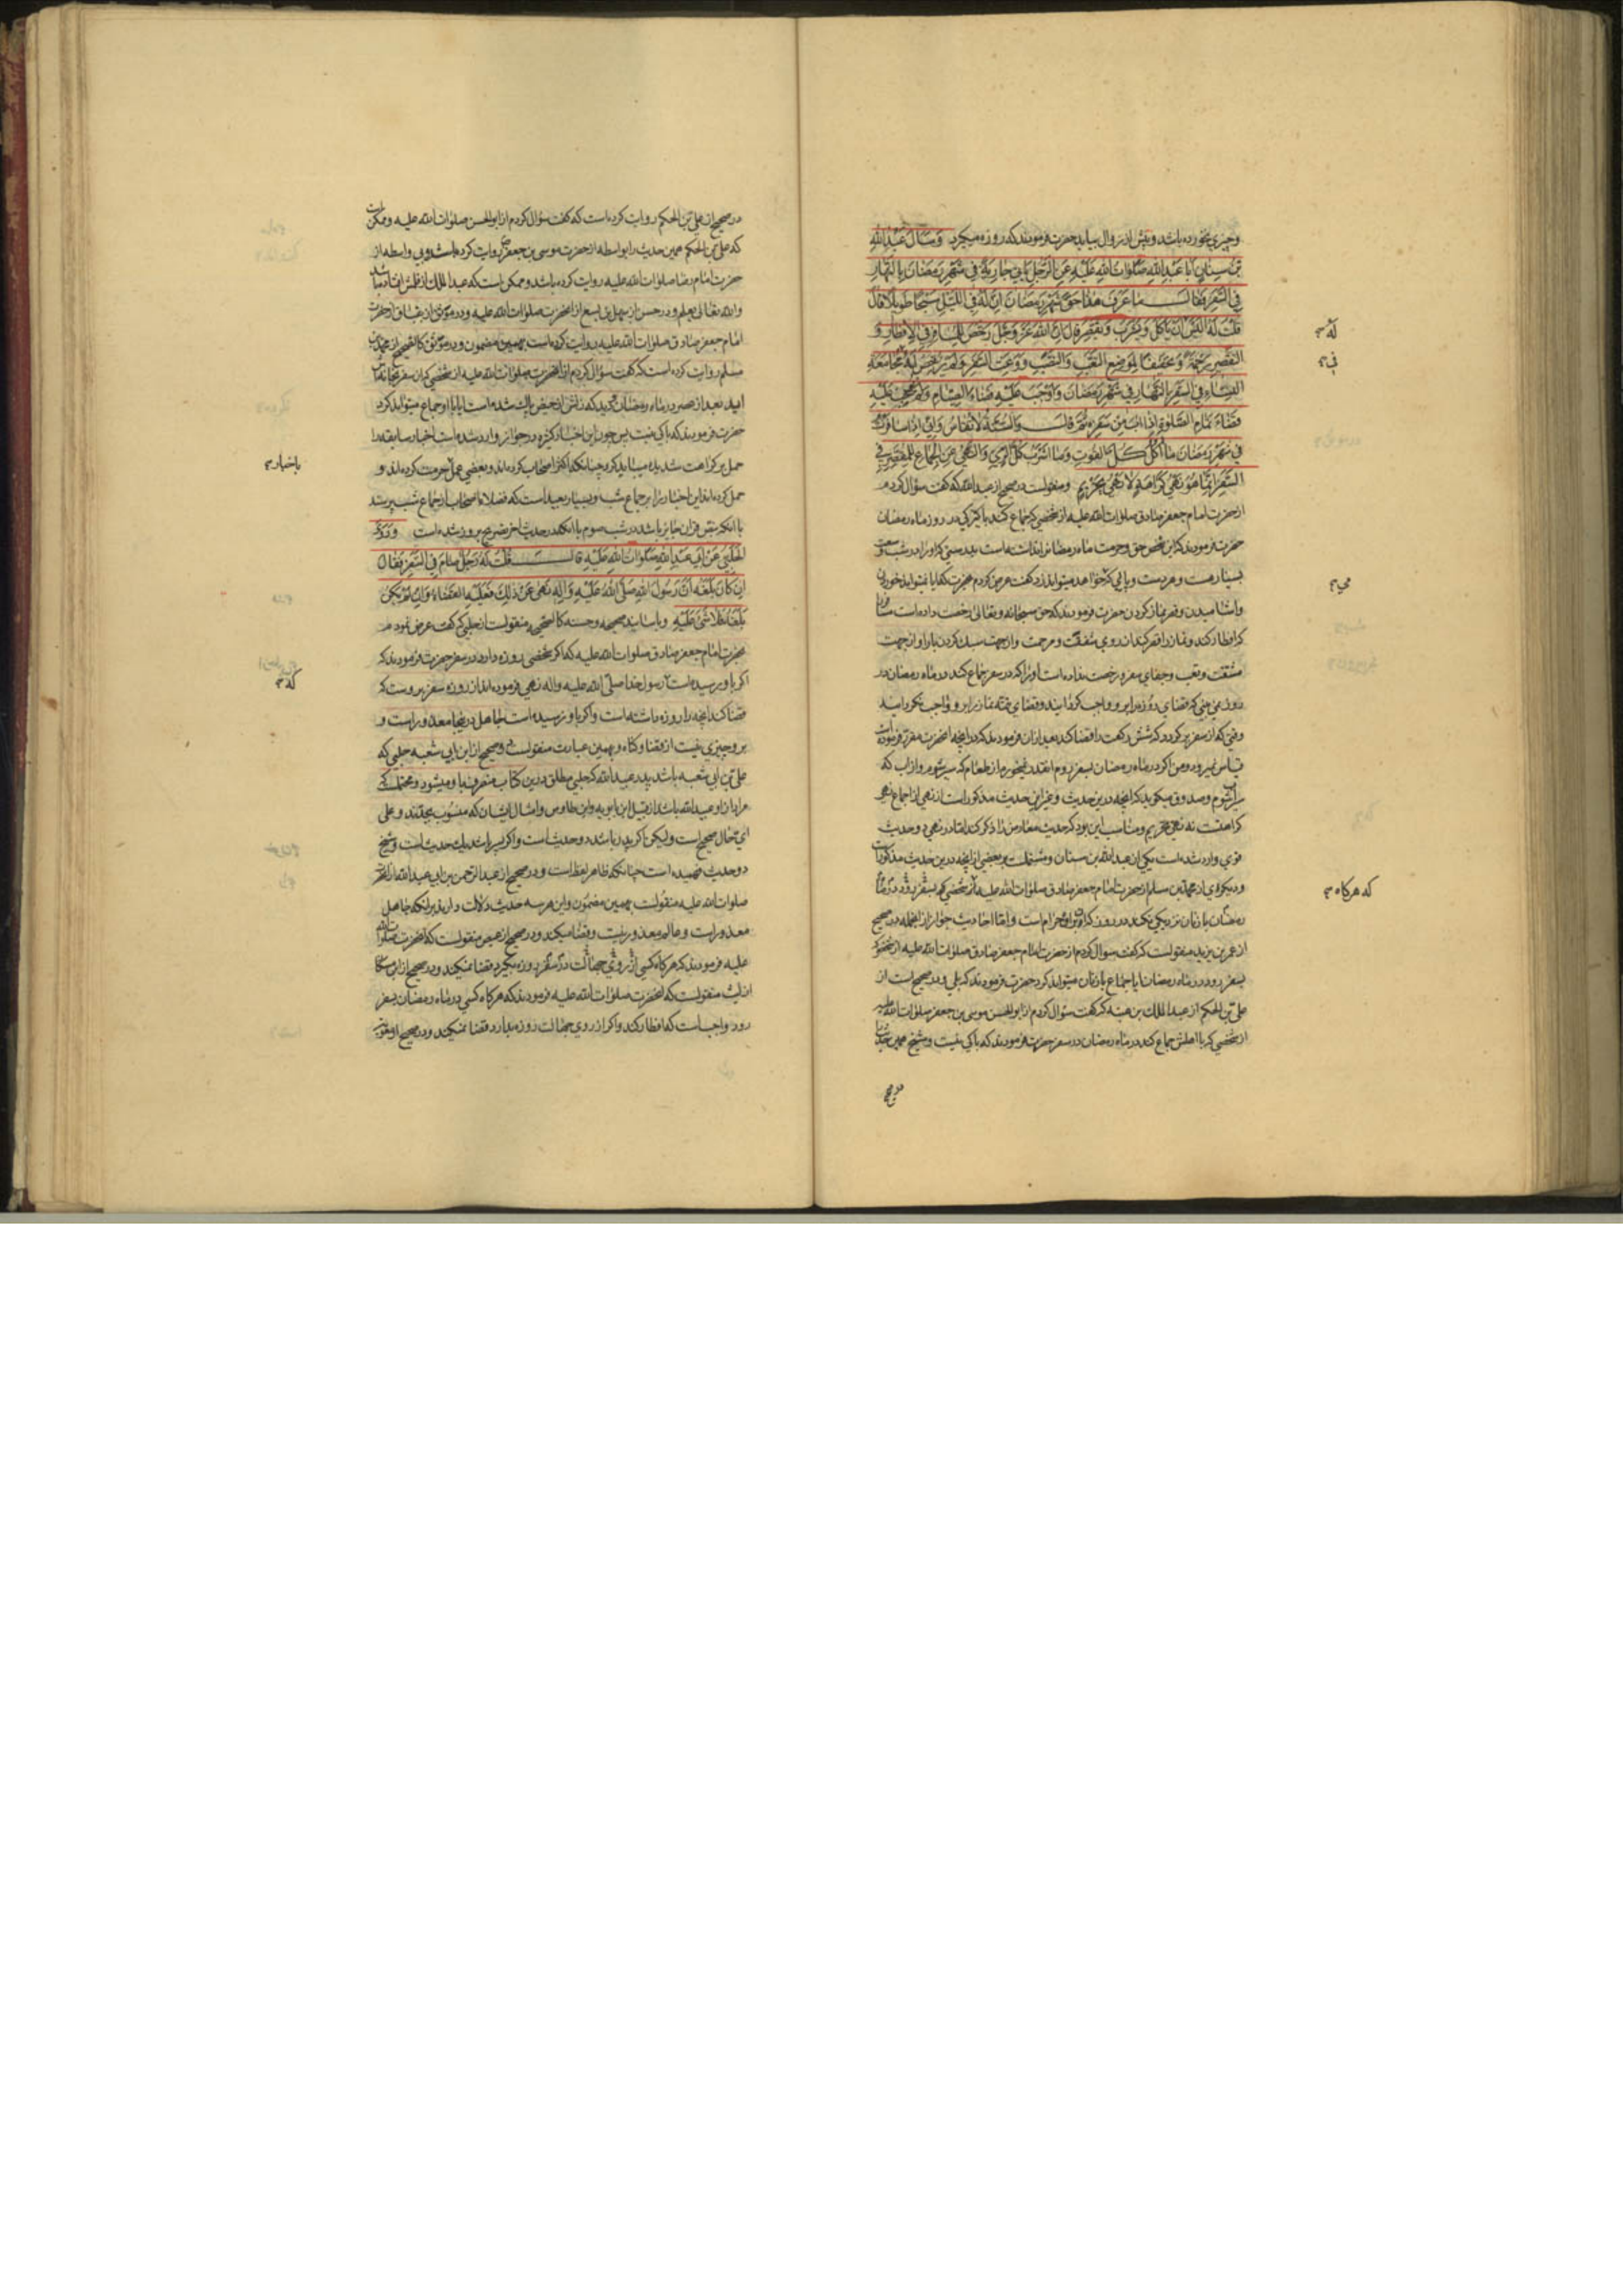 وچیزي نخورده باشد و پیش از زوال بیاید حضرت فرمودند که روزه میگیرد وَسَاَلَ عَبْدُاللهِ
بْنُ سِنانٍ اَبا عَبْدِاللهِ صَلَوٰاتُ اللهِ عَلَیْهِ عَنِ الرَّجُلِ یَاْتي جٰارِیَةً في شَهْرِ رَمَضٰانَ بِالنَّهٰارِ
فِي السَّفَرِ فَقٰالَ مٰا عَرَفَ هٰذا حَقَّ شَهْرِ رَمَضٰانَ اِنَّ لَهُ فِي اللَّیْلِ سَبْحًا طَویلًا قالَ
قُلْتُ لَهُ اَلَیْسَ اَنْ یَاْکُلَ وَیَشْرَبَ وَیُقَصِّرَ قالَ اِنَّ اللهَ عَزَّ وَجَلَّ رَخَّصَ لِلْمُسٰافِرِ فِي الْاِفْطٰارِ وَ
التَّقْصیرِ رَحْمَةً وَتَخْفیفًا لِمَوْضِعِ التَّعَبِ وَالنَّصَبِ وَوَعَثِ السَّفَرِ وَلَمْ یُرَخِّصْ لَهُ في مُجٰامَعَةِ
النِّسٰاءِ فِي السَّفَرِ بِالنَّهٰارِ في شَهْرِ رَمَضٰانَ وَاَوْجَبَ عَلَیْهِ قَضٰاءَ الصِّیٰامِ وَلَمْ یُوجِبْ عَلَیْهِ
قَضٰاءَ تَمٰامِ الصَّلٰوةِ اِذٰا اٰبَ مِنْ سَفَرِهِ ثُمَّ قالَ وَالسُّنَّةُ لٰا تُقٰاسُ وَاِنّي اِذٰا سٰافَرْتُ
في شَهْرِ رَمَضٰانَ مٰا اٰکُلُ کُلَّ الْقُوتِ وَمٰا اَشْرَبُ کُلَّ الرِّيِّ وَالنَّهْيُ عَنِ الْجِمٰاعِ لِلْمُقَصِّرِ فِي
السَّفَرِ اِنَّمٰا هُوَ نَهْيُ کَرٰاهَةٍ لٰا نَهْيُ تَحْریمٍ ومنقولست در صحیح از عبدالله که گفت سؤال کردم
از حضرت امام جعفر صادق صلوات الله علیه از شخصی که جماع کند با کنیزکی در روز ماه رمضان
حضرت فرمودند که این شخص حق وحرمت ماه رمضان را نشناخته است
له
في
مي
واشامیدن وقصر نماز کردن حضرت فرمودند که حق سبحانه وتعالی رخصت داده است مسافر
که افطار کند ونماز را قصر کند از روي شفقت ومرحمت واز جهت سبک کردن بار او از جهت
مشقت وتعب وجفاي سفر ورخصت نداده است او را که در سفر جماع کند در ماه رمضان در
وقتی که از سفر برگردد که شش رکعت را قضا کند بعد ازان فرمودند که
قیاس نمیرود ومن اگر در ماه رمضان بسفر روم انقدر نمیخورم از طعام که سیر شوم واز آب که
سیراب شوم وصدوق میگوید که انچه درین حدیث وغیر این حدیث مذکور است از نهی از جماع نهی
کراهتست نه نهی تحریم ومناسب این بود که حدیث
قوي وارد شده است یکی از عبدالله بن سنان ومشتملست بر بعضی از انچه درین حدیث مذکور است
ودیگری از محمد بن مسلم از حضرت امام جعفر صادق صلوات الله علیه
که هرگاه
رمضان با زنان نزدیکی نکند در روز که او حرام است واما احادیث جواز از انجمله در صحیح
از عمر بن یزید منقولست که گفت سوال کردم از حضرت امام جعفر صادق صلوات الله علیه از شخصی که
بسفر رود در ماه رمضان ایا جماع با زنان میتواند کرد حضرت فرمودند که بلی ودر صحیح است از
علي بن الحکم از عبدالملک بن عتبه که گفت سؤال کردم از ابوالحسن موسی بن جعفر صلوات الله علیه
از شخصی که با اهلش جماع کند در ماه رمضان در سفر حضرت فرمودند که باکی نیست وشیخ همین حدیث
در صحیح
در صحیح از علي بن الحکم روایت کرده است که گفت سؤال کردم از ابوالحسن صلوات الله علیه وممکن است
که علي بن الحکم همین حدیث را بواسطه از حضرت موسی بن جعفر روایت کرده باشد وبی واسطه از
حضرت امام رضا صلوات الله علیه روایت کرده باشد وممکن است که عبدالملک از قلمش افتاده باشد
والله تعالی یعلم ودر حسن از سهل بن یسع از انحضرت صلوات الله علیه ودر موثق
امام جعفر صادق صلوات الله علیه روایت کرده است بهمین مضمون ودر موثق کالصحیح از محمد بن
مسلم روایت کرده است که گفت سؤال کردم از انحضرت صلوات الله علیه از شخصی که از سفر بخانه اش
اید بعد از عصر در ماه رمضان
حضرت فرمودند که باکی نیست پس چون این اخبار کثیره در جواز وارد شده است اخبار سابقه را
حمل بر کراهت شدیده میباید کرد چنانکه اکثر اصحاب کرده اند وبعضی عمل
باخبار
حمل کرده اند این اخبار را بر جماع شب وبسیار بعید است که فضلاء اصحاب از جماع شب پرسند
با انکه بنص قران جایز باشد در شب صوم با انکه در حدیث اخر صریح بروز شده است وَرَوَی
الْحَلَبِيُّ عَنْ اَبي عَبْدِاللهِ صَلَوٰاتُ اللهِ عَلَیْهِ قٰالَ قُلْتُ لَهُ رَجُلٌ صٰامَ فِي السَّفَرِ فَقٰالَ
اِنْ کٰانَ بَلَغَهُ اَنَّ رَسُولَ اللهِ صَلَّی اللهُ عَلَیْهِ وَاٰلِهِ نَهیٰ عَنْ ذٰلِکَ فَعَلَیْهِ الْقَضٰاءُ وَاِنْ لَمْ یَکُنْ
بَلَغَهُ فَلٰا شَيْءَ عَلَیْهِ وباسانید صحیحه وحسنه کالصحیحه منقولست از حلبی که گفت عرض نمودم
بحضرت امام جعفر صادق صلوات الله علیه که اگر شخصی روزه دارد در سفر حضرت فرمودند که
که
اگر باو رسیده است رسول خدا صلّی الله علیه واله نهی فرموده اند از روزه سفر بروست که
قضا کند انچه را روزه داشته است واگر باو نرسیده است جاهل درینجا معذور است و
برو چیزي نیست از قضا وگناه وبهمین عبارت منقولست در صحیح از ابن ابی شعبه حلبی که
علي بن ابی شعبه باشد پدر عبیدالله که حلبی مطلق درین کتاب منصرف باو میشود ومحتمل است که
مراد ازو عبیدالله باشد از قبیل ابن بابویه وابن طاوس وامثال ایشان که منسوب بجدند وعلی
اي حال صحیح است ولیکن اگر پدر باشد دو حدیث است واگر پسر باشد یک حدیث است وشیخ
دو حدیث فهمیده است چنانکه ظاهر لفظ است ودر صحیح از عبدالرحمن بن ابی عبدالله از انحضرت
صلوات الله علیه منقولست بهمین مضمون واین هر سه حدیث دلالت دارند بر انکه جاهل
معذور است وعالم معذور نیست وقضا میکند ودر صحیح از عیص منقولست که انحضرت صلوات الله
علیه فرمودند که هرگاه کسی از روي جهالت در سفر روزه بگیرد قضا نمیکند ودر صحیح از ابن مسکان
از لیث منقولست که انحضرت صلوات الله علیه فرمودند که هرگاه کسی در ماه رمضان بسفر
رود واجب است که افطار کند واگر از روي جهالت روزه بدارد قضا نمیکند ودر صحیح از